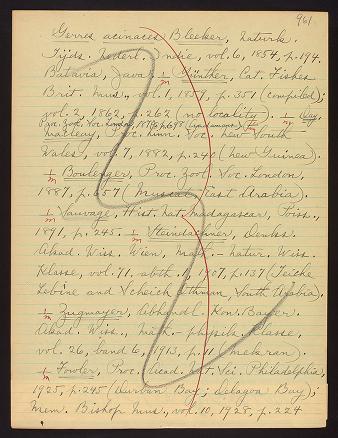 961
Gerres acinaces Bleeker, Naturk.
Tijds. Nederl. Indie, vol. 6, 1854, p. 194.
Batavia, Java. 1/m Günther, Cat. Fishes
Brit. Mus., vol. 1, 1859, p. 351 (compiled);
vol. 2, 1862, p. 262 (no locality). 1/m Day,
Proc. Zool. Soc. London, 1870, p. 698 (Andamans).
Macleay, Proc. Linn. Soc. New South
Wales, vol. 7, 1882, p. 248 (New Guinea).
1/m Boulenger, Proc. Zool. Soc. London,
1887, p. 657 (Muscat, East Arabia).
1/m Sauvage, Hist. Nat. Madagascar, Poiss.,
1891, p. 245. 1/m Steindachner, Denks.
Akad. Wiss. Wien, Math.-natur. Wiss.
Klasse, vol. 71, abth. 1, 1907, p. 137 (Teiche
and Scheich Othman, South Arabia).
1/m Zugmayer, Abhandl. Kon. Bayer.
Akad. Wiss., Math.-physik. Klasse,
vol. 26, band 6, 1913, p. 11 (Mekran).
1/m Fowler, Proc. Acad. Nat. Sci. Philadelphia,
1925, p. 245 (Durban Bay; Delagoa Bay);
Mem. Bishop Mus., vol. 10, 1928, p. 224